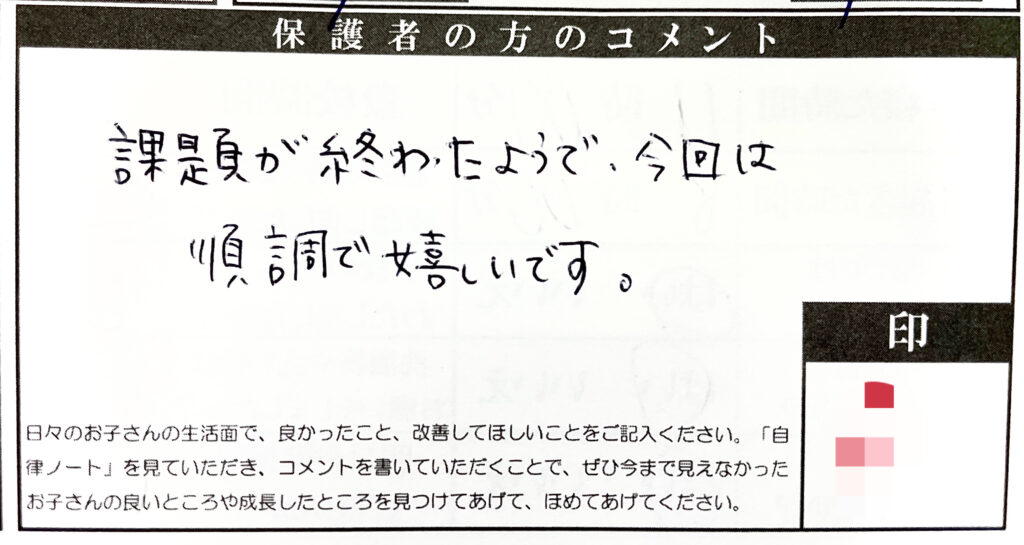 保護者の方のコメント
課題が終わったようで、今回は
順調で嬉しいです。
印
日々のお子さんの生活面で、良かったこと、改善してほしいことをご記入ください。「自
律ノート」を見ていただき、コメントを書いていただくことで、ぜひ今まで見えなかった
お子さんの良いところや成長したところを見つけてあげて、ほめてあげてください。